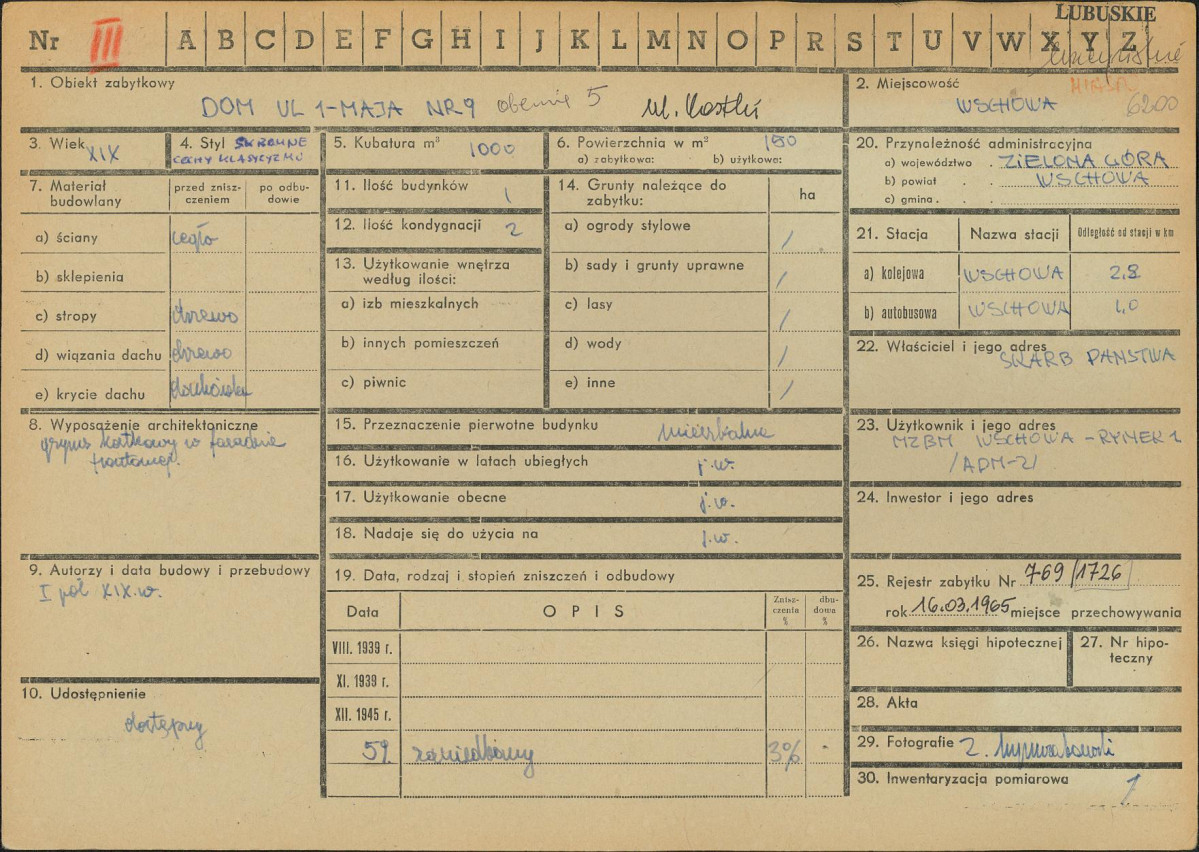 LUBUSKIE
Nr III A B C D E F G H I J K L M N O P R S T U V W X Y Z
1. Obiekt zabytkowy
DOM UL 1-MAJA NR 9 obecnie 5
2. Miejscowość
WSCHOWA
6200
3. Wiek XIX
4. Styl SKROMNE
CECHY KLASYCYZMU
5. Kubatura m³ 1000
6. Powierzchnia w m² 180
a) zabytkowa: b) użytkowa:
7. Materiał budowlany
przed zniszczeniem
po odbudowie
a) ściany cegła
b) sklepienia
c) stropy drewno
d) wiązania dachu drewno
e) krycie dachu dachówka
8. Wyposażenie architektoniczne
gzyms kostkowy w fasadzie
frontowej.
9. Autorzy i data budowy i przebudowy
I poł XIX.w.
10. Udostępnienie
dostępny
11. Ilość budynków 1
12. Ilość kondygnacji 2
13. Użytkowanie wnętrza
według ilości:
a) izb mieszkalnych
b) innych pomieszczeń
c) piwnic
14. Grunty należące do
zabytku:
ha
a) ogrody stylowe /
b) sady i grunty uprawne /
c) lasy /
d) wody /
e) inne /
15. Przeznaczenie pierwotne budynku mieszkalne
16. Użytkowanie w latach ubiegłych j.w.
17. Użytkowanie obecne j.w.
18. Nadaje się do użycia na j.w.
19. Data, rodzaj i stopień zniszczeń i odbudowy
Data OPIS Zniszczenia % dbudowa %
VIII. 1939 r.
XI. 1939 r.
XII. 1945 r.
59. zaniedbany 3% -
20. Przynależność administracyjna
a) województwo ZIELONA GÓRA
b) powiat WSCHOWA
c) gmina
21. Stacja Nazwa stacji Odległość od stacji w km
a) kolejowa WSCHOWA 2,8
b) autobusowa WSCHOWA 1,0
22. Właściciel i jego adres
SKARB PAŃSTWA
23. Użytkownik i jego adres
MZBM WSCHOWA - RYNEK 1
/ADM-2/
24. Inwestor i jego adres
25. Rejestr zabytku Nr 769/1726
rok 16.03.1965 miejsce przechowywania
26. Nazwa księgi hipotecznej
27. Nr hipoteczny
28. Akta
29. Fotografie Z.
30. Inwentaryzacja pomiarowa 1